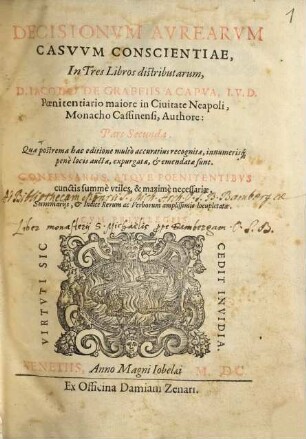 1
DECISIONVM AVREARVM
CASVVM CONSCIENTIAE,
In Tres Libros distributarum,
D. IACOBI DE GRAFFIIS A CAPVA, I.V.D.
Pœnitentiario maiore in Ciuitate Neapoli,
Monacho Cassinensi, Authore:
Pars Secunda,
Quæ postrema hac editione multò accuratius recognita, innumerisq;
penè locis aucta, expurgata, & emendata sunt.
CONFESSARIIS, ATQVE POENITENTIBVS
cunctis summè vtiles, & maximè necessariæ
Summarijs, & Index Rerum ac Verborum amplissimis locupletatæ.
Liber monasterij S. Michaelis prope Bambergam O. S. B.
VIRTVTI SIC
CEDIT INVIDIA.
VENETIIS, Anno Magni Iobelæi M. DC.
Ex Officina Damiani Zenari.